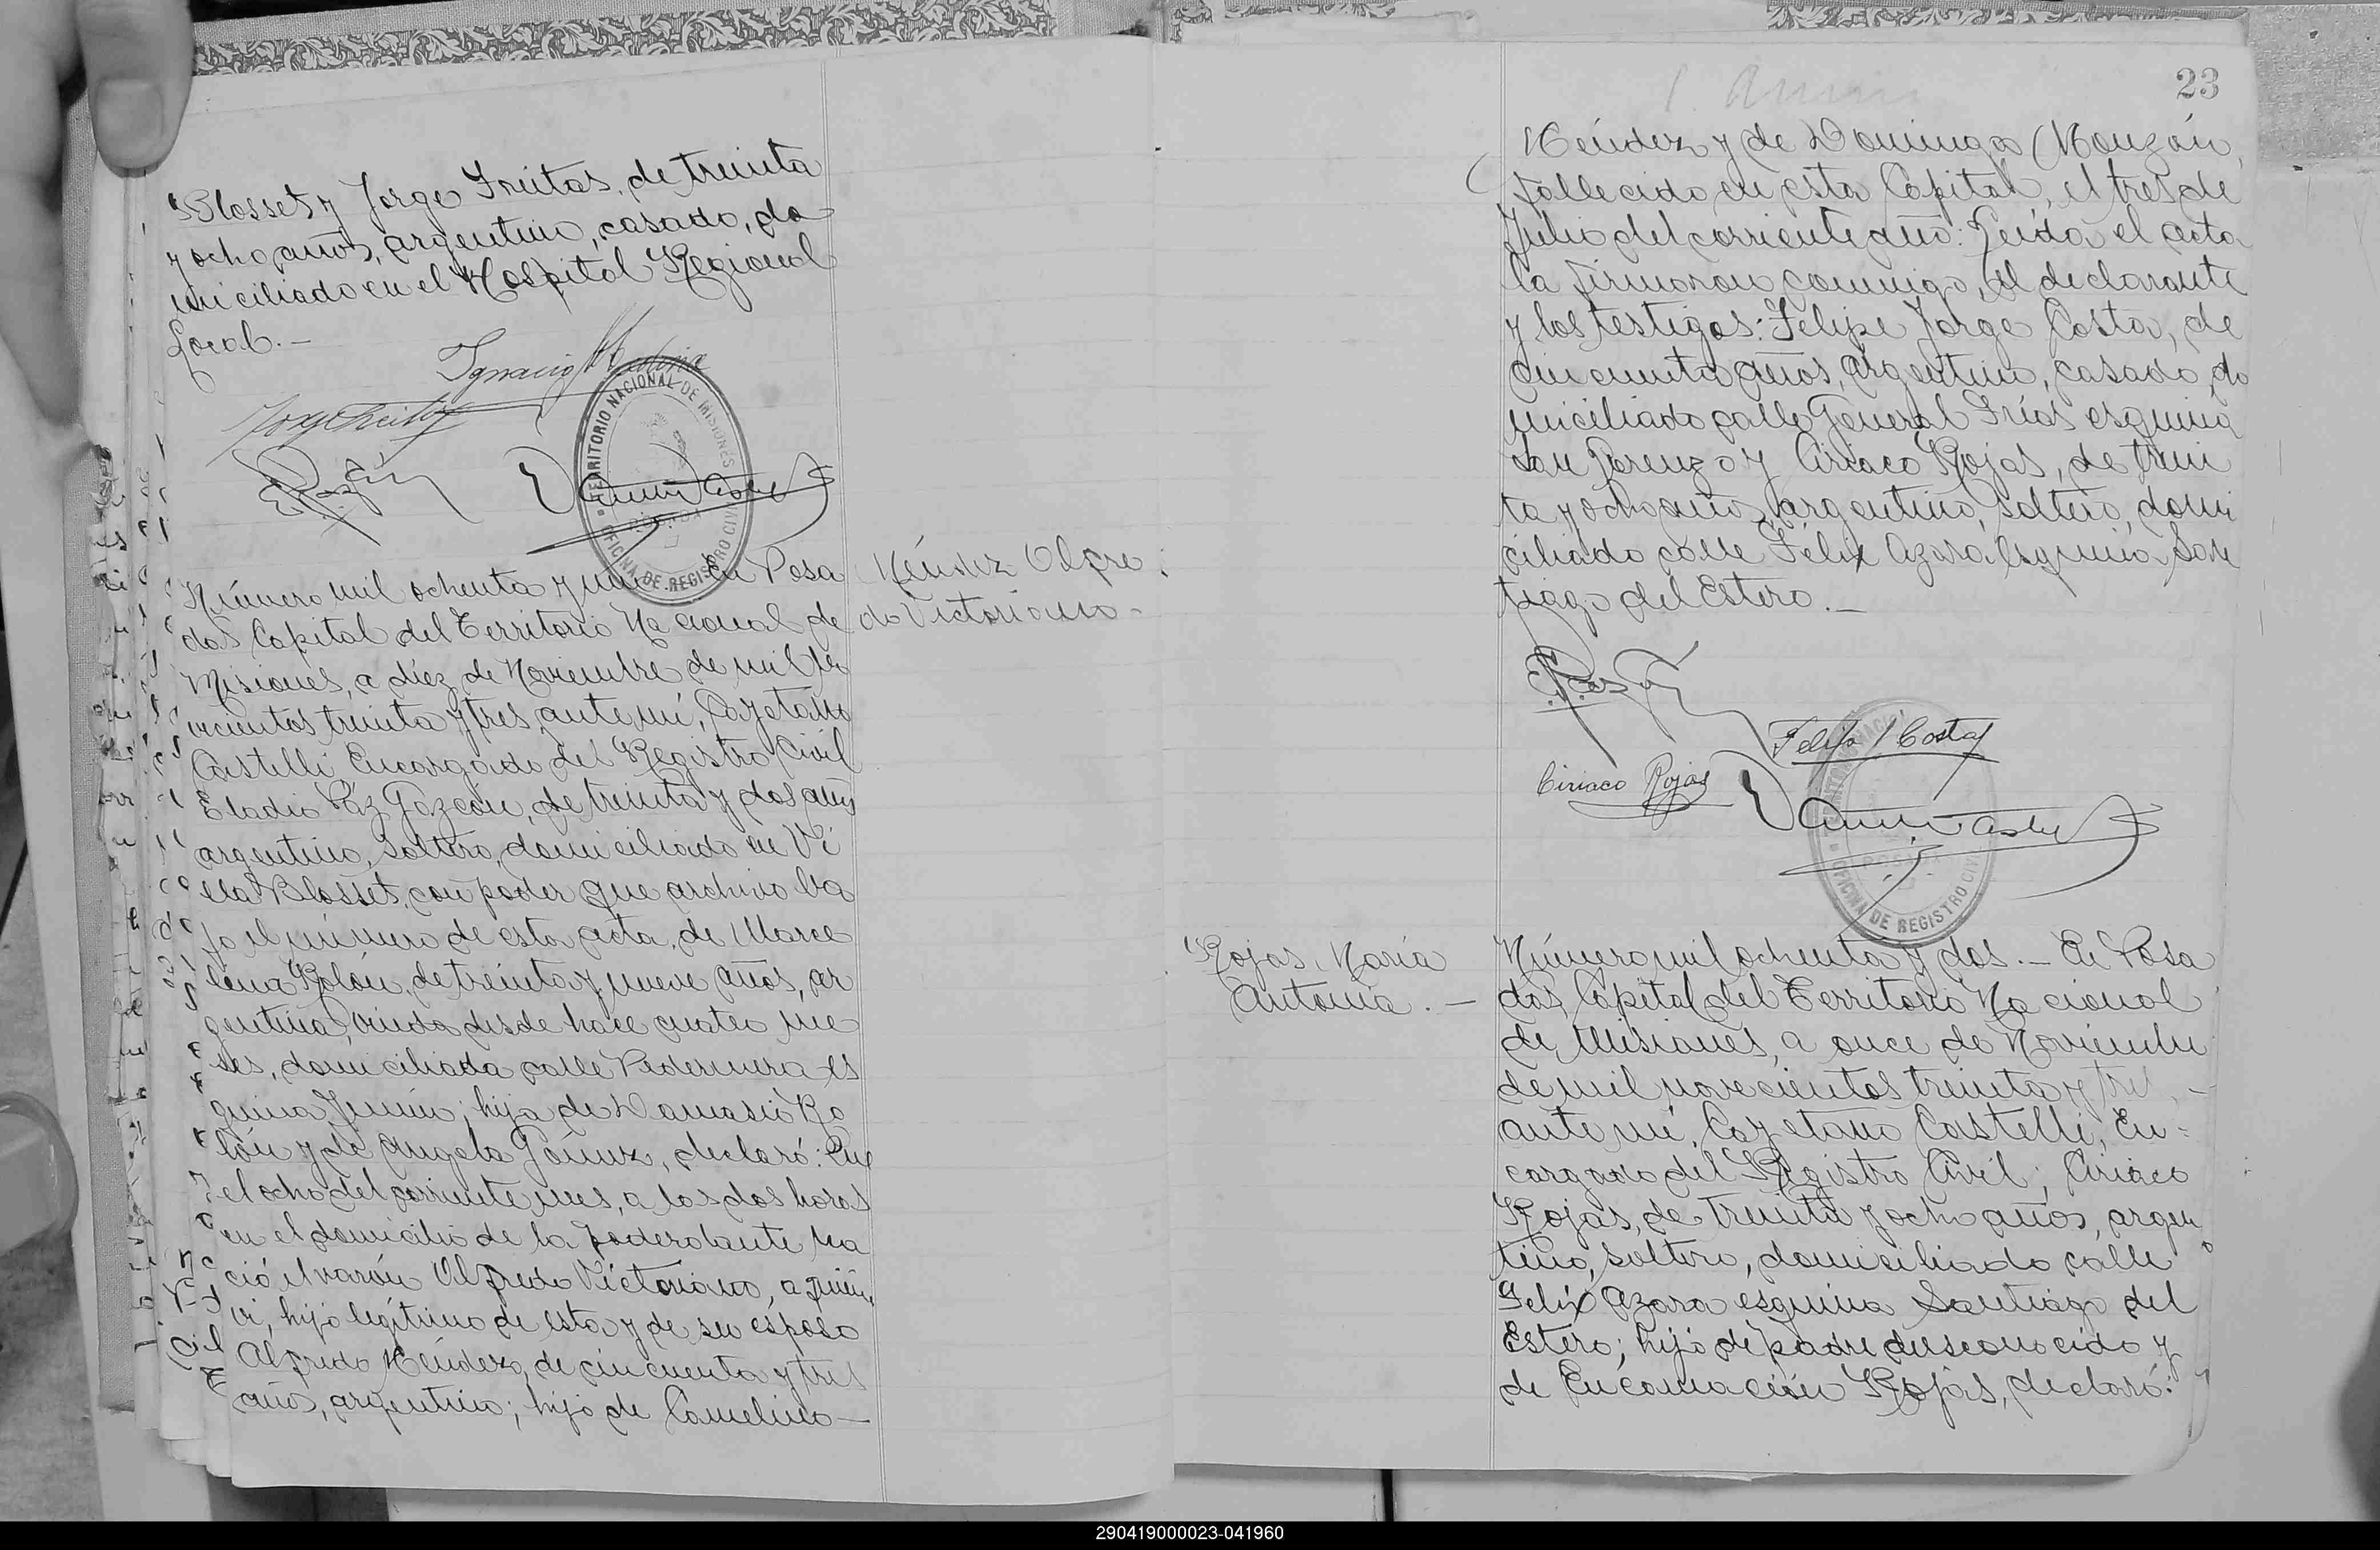 Blosset y Jorge Freitas, de treinta
y ocho años, argentino, casado, do
miciliado en el Hospital Regional
Local.—
Ignacio Medina
TERRITORIO NACIONAL DE MISIONES
OFICINA DE REGISTRO CIVIL
POSADAS
Número mil ochenta y uno En Posa
das Capital del Territorio Nacional de
Misiones, a diez de Noviembre de mil no
vecientos treinta y tres, ante mí, Cayetano
Castelli, Encargado del Registro Civil
Eladio Páz Gozcón, de treinta y dos años
argentino, soltero, domiciliado en Vi
lla Blosset, con poder que archivo ba
jo el número de esta acta, de Marce
lina Rolón, de treinta y nueve años, ar
gentina, viuda desde hace cuatro me
ses, domiciliada calle Pedernera es
quina Junín; hija de Damasio Ro
lón y de Angela Gómez, declaró: Que
el ocho del corriente mes, a las dos horas
en el domicilio de la poderdante na
ció el varón Alfredo Victoriano, a quien
vi, hijo legítimo de esta y de su esposo
Alfredo Méndez, de cincuenta y tres
años, argentino; hijo de Camelino—
Méndez Alfre
do Victoriano-
23
Méndez y de Dominga Monzón,
fallecido en esta Capital, el tres de
Julio del corriente año: Leída el acta
la firmaron conmigo, el declarante
y los testigos: Felipe Jorge Costa, de
cincuenta años, argentino, casado, do
miciliado calle General Frías esquina
San Lorenzo y Ciriaco Rojas, de trein
ta y ocho años, argentino, soltero, domi
ciliado calle Félix Azara esquina San
tiago del Estero.—
Felipe J Costa
Ciriaco Rojas
OFICINA DE REGISTRO CIVIL
Rojas, María
Antonia.—
Número mil ochenta y dos.— En Posa
das, Capital del Territorio Nacional
de Misiones, a once de Noviembre
de mil novecientos treinta y tres,—
ante mí, Cayetano Castelli, En-
cargado del Registro Civil; Ciriaco
Rojas, de treinta y ocho años, argen
tino, soltero, domiciliado calle
Felix Azara esquina Santiago del
Estero; hijo de padre desconocido y
de Encarnación Rojas, declaró:
290419000023-041960